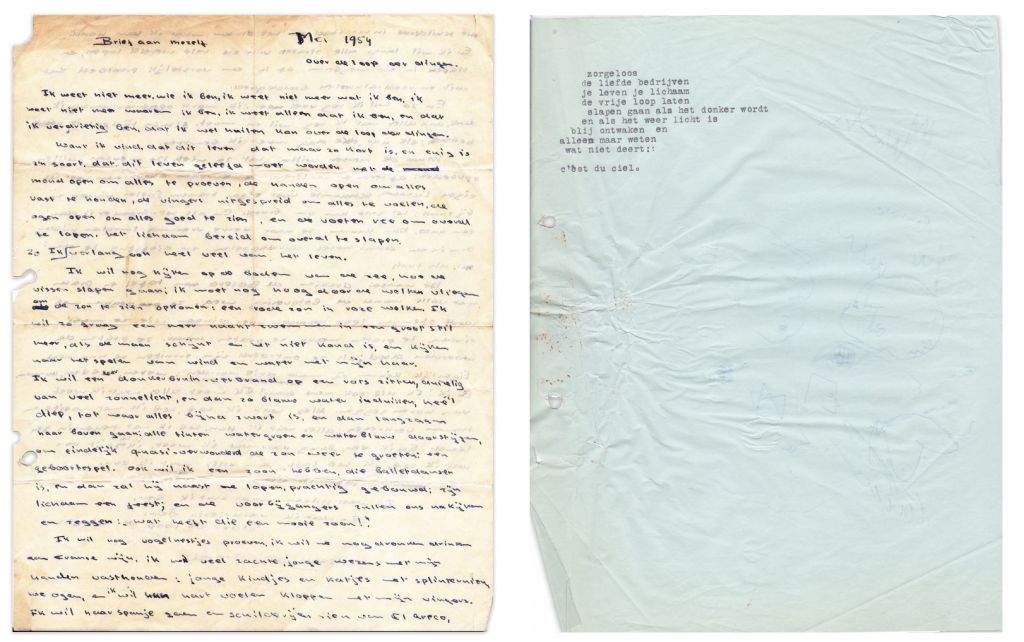 Brief aan mezelf Mei 1954
over de loop der dingen.
Ik weet niet meer, wie ik ben, ik weet niet meer wat ik ben, ik
weet niet meer waarom ik ben, ik weet alleen dat ik ben, en dat
ik verdrietig ben, dat ik wel huilen kan over de loop der dingen.
Want ik vind, dat dit leven dat maar zo kort is, en enig is
in soort, dat dit leven geleefd moet worden met de
mond open om alles te proeven, de handen open om alles
vast te houden, de vingers uitgespreid om alles te voelen, de
ogen open om alles goed te zien, en de voeten om overal
te lopen, het lichaam bereid om overal te slapen.
Ik verlang ook heel veel van het leven.
Ik wil nog kijken op de bodem van de zee, hoe de
vissen slapen gaan; ik moet nog hoog door de wolken vliegen
om de zon te zien opkomen: een rode zon in roze wolken. Ik
wil zo graag een keer naakt zwemmen in een groot stil
meer, als de maan schijnt en het niet koud is, en kijken
naar het spelen van wind en water met mijn haar.
Ik wil een keer donkerbruin-verbrand op een rots zitten, duizelig
van veel zonnelicht, en dan zo blauw water induiken, heel
diep, tot waar alles bijna zwart is, en dan langzaam
naar boven gaan: alle tinten watergroen en waterblauw doorstijgen,
om eindelijk quasi-verwonderd de zon weer te groeten: een
geboortespel. Ook wil ik een zoon hebben, die balletdanser
is, en dan zal hij naast me lopen, prachtig gebouwd; zijn
lichaam een feest; en de voorbijgangers zullen ons nakijken
en zeggen: "wat heeft die een mooie zoon!"
Ik wil nog vogelnestjes proeven, ik wil me nog dronken drinken
aan Franse wijn, ik wil veel zachte, jonge wezens met mijn
handen vasthouden: jonge kindjes en katjes met splinternieu
we ogen, en ik wil hun hart voelen kloppen met mijn vingers.
Ik wil naar Spanje gaan en schilderijen zien van El Greco,
zorgeloos
de liefde bedrijven
je leven je lichaam
de vrije loop laten
slapen gaan als het donker wordt
en als het weer licht is
blij ontwaken en
alleen maar weten
wat niet deert;!
c'est du ciel.